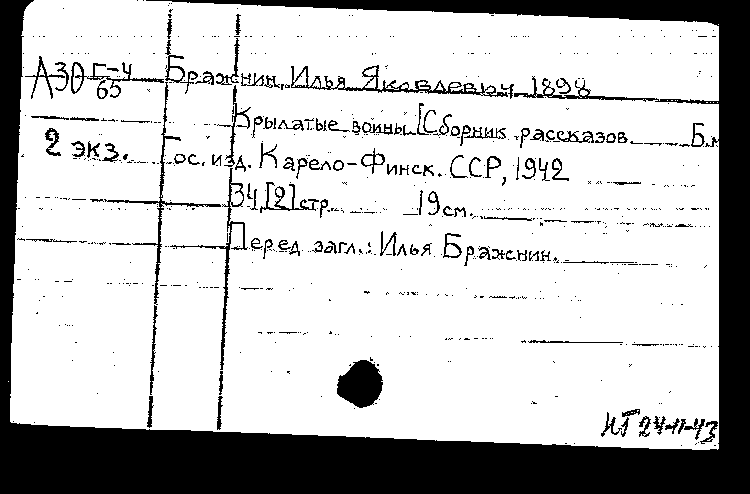 А30 Г-4 Бражнин, Илья Яковлевич 1898
65
Крылатые воины [Сборник рассказов. Б.м
2 экз. Гос. изд. Карело-Финск. ССР, 1942
34,[2]стр. 19см.
Перед загл.: Илья Бражнин.
24-11-43